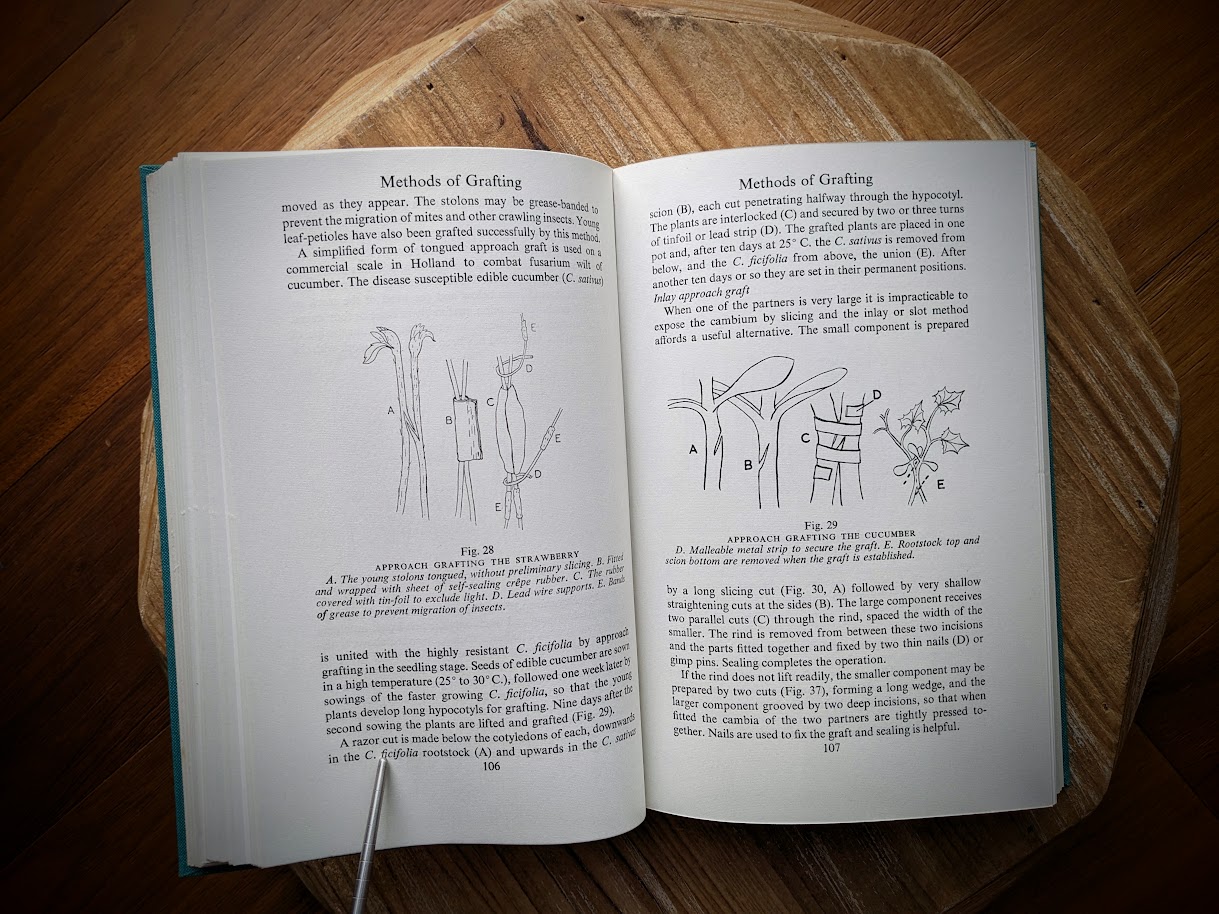 Methods of Grafting
moved as they appear. The stolons may be grease-banded to
prevent the migration of mites and other crawling insects. Young
leaf-petioles have also been grafted successfully by this method.
A simplified form of tongued approach graft is used on a
commercial scale in Holland to combat fusarium wilt of
cucumber. The disease susceptible edible cucumber (C. sativus)
E
D
A
B
C
E
D
E
Fig. 28
APPROACH GRAFTING THE STRAWBERRY
A. The young stolons tongued, without preliminary slicing. B. Fitted
and wrapped with sheet of self-sealing crêpe rubber. C. The rubber
covered with tin-foil to exclude light. D. Lead wire supports. E. Bands
of grease to prevent migration of insects.
is united with the highly resistant C. ficifolia by approach
grafting in the seedling stage. Seeds of edible cucumber are sown
in a high temperature (25° to 30° C.), followed one week later by
sowings of the faster growing C. ficifolia, so that the young
plants develop long hypocotyls for grafting. Nine days after the
second sowing the plants are lifted and grafted (Fig. 29).
A razor cut is made below the cotyledons of each, downwards
in the C. ficifolia rootstock (A) and upwards in the C. sativus
106
Methods of Grafting
scion (B), each cut penetrating halfway through the hypocotyl.
The plants are interlocked (C) and secured by two or three turns
of tinfoil or lead strip (D). The grafted plants are placed in one
pot and, after ten days at 25° C, the C. sativus is removed from
below, and the C. ficifolia from above, the union (E). After
another ten days or so they are set in their permanent positions.
Inlay approach graft
When one of the partners is very large it is impracticable to
expose the cambium by slicing and the inlay or slot method
affords a useful alternative. The small component is prepared
A
B
C
D
E
Fig. 29
APPROACH GRAFTING THE CUCUMBER
D. Malleable metal strip to secure the graft. E. Rootstock top and
scion bottom are removed when the graft is established.
by a long slicing cut (Fig. 30, A) followed by very shallow
straightening cuts at the sides (B). The large component receives
two parallel cuts (C) through the rind, spaced the width of the
smaller. The rind is removed from between these two incisions
and the parts fitted together and fixed by two thin nails (D) or
gimp pins. Sealing completes the operation.
If the rind does not lift readily, the smaller component may be
prepared by two cuts (Fig. 37), forming a long wedge, and the
larger component grooved by two deep incisions, so that when
fitted the cambia of the two partners are tightly pressed to-
gether. Nails are used to fix the graft and sealing is helpful.
107